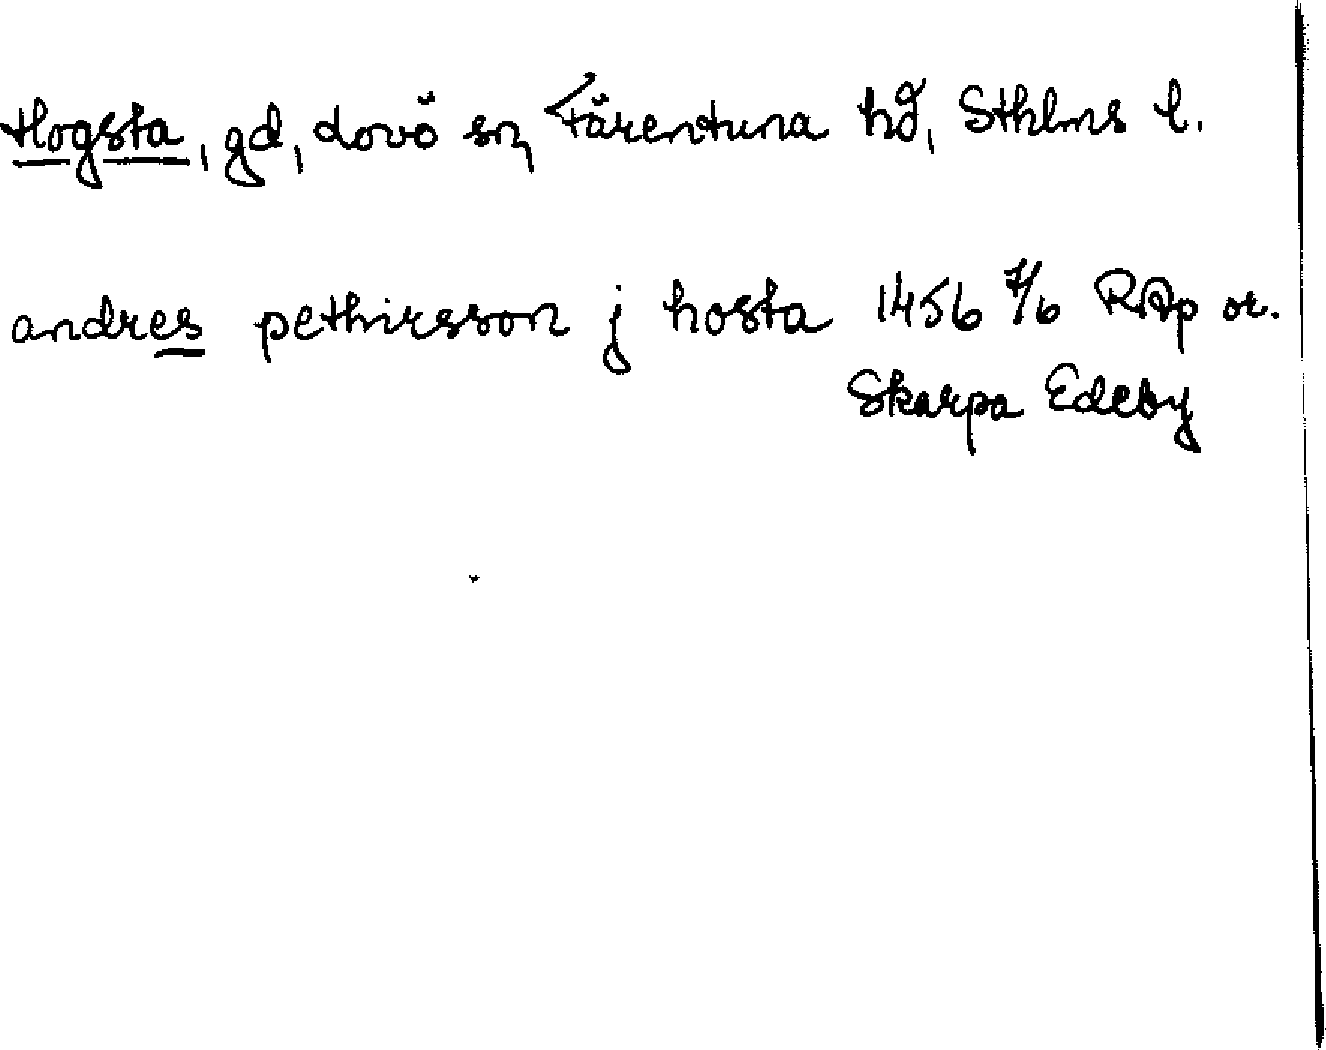 Hogsta, gd, Lovö sn, Färentuna hd, Sthlms l.
andres pethirsson j hosta 1456 7/6 RAp or.
Skarpa Edeby